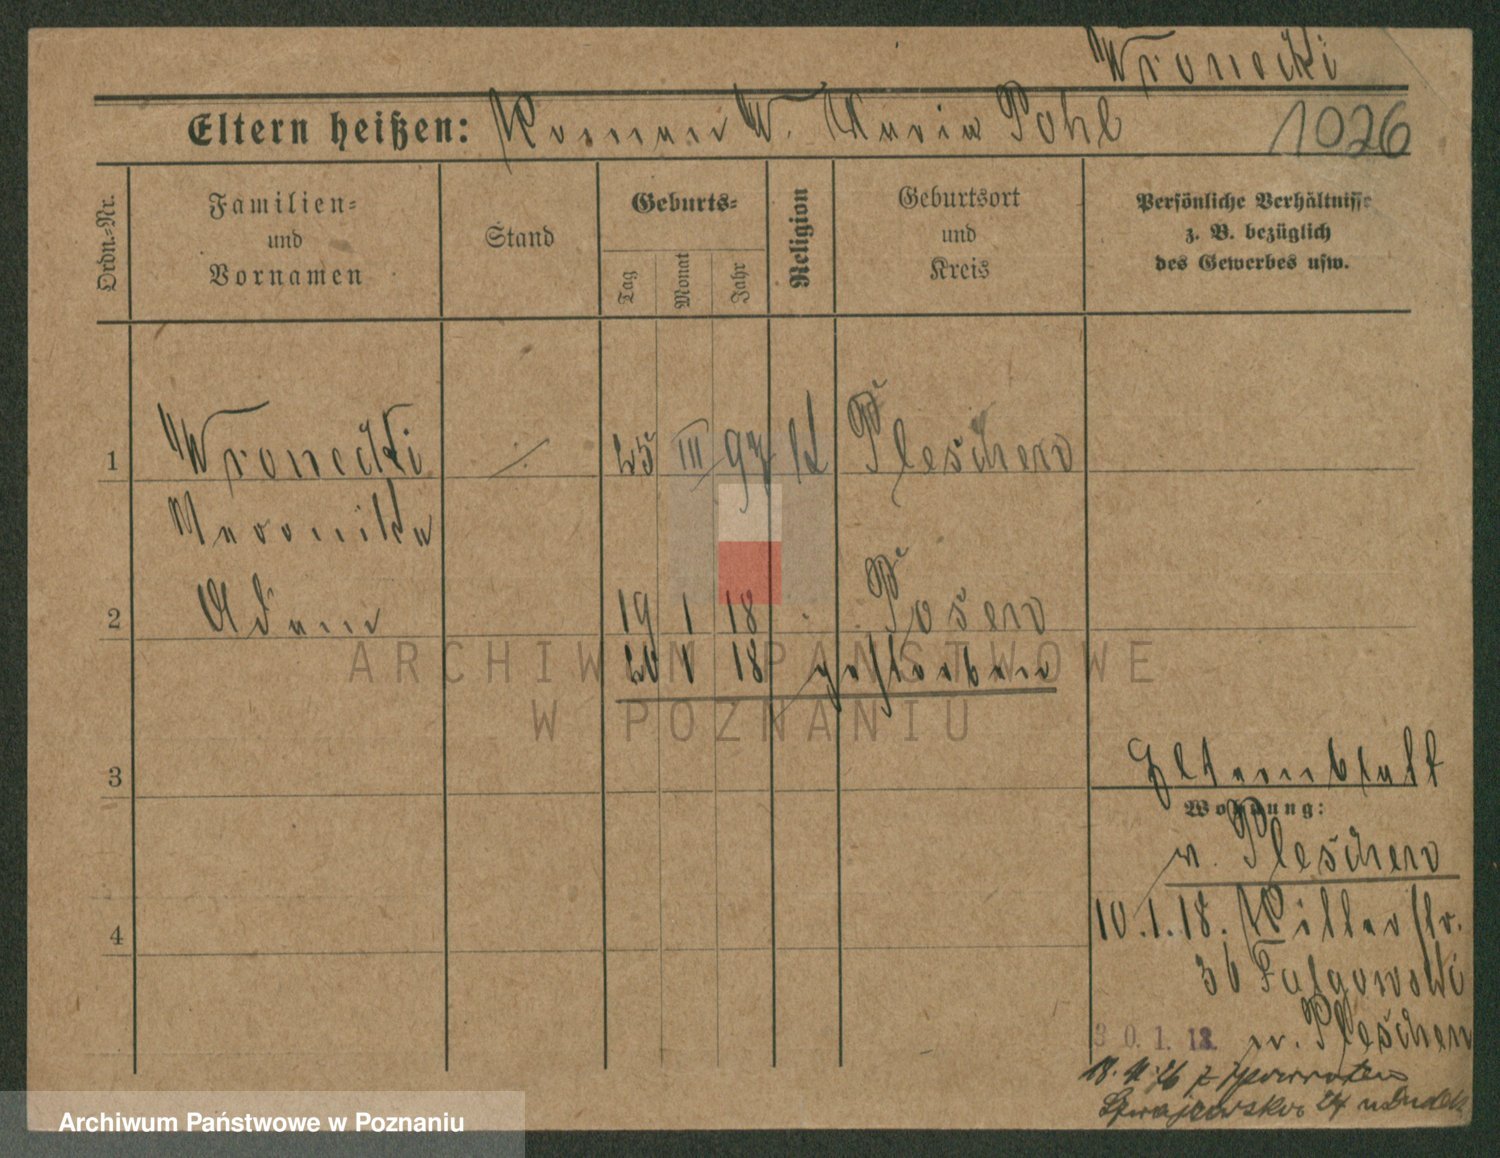 Wronecki
Eltern heißen: Roman W. Maria Pohl 1026
Ordn.-Nr.
Familien-
und
Vornamen
Stand
Geburts-
Tag
Monat
Jahr
Religion
Geburtsort
und
Kreis
Persönliche Verhältnisse
z. B. bezüglich
des Gewerbes usw.
1 Wronecki ·/· 25 III 97 k Pleschen
Weronika
2 Adam 19 1 18 Posen
20 1 18 gestorben
ARCHIWUM PAŃSTWOWE
W POZNANIU
3 Elternblatt
Wohnung:
n. Pleschen
4 10.1.18. Ritterstr.
36 Falgowski
30.1.18. n. Pleschen
18. z
24 u
Archiwum Państwowe w Poznaniu